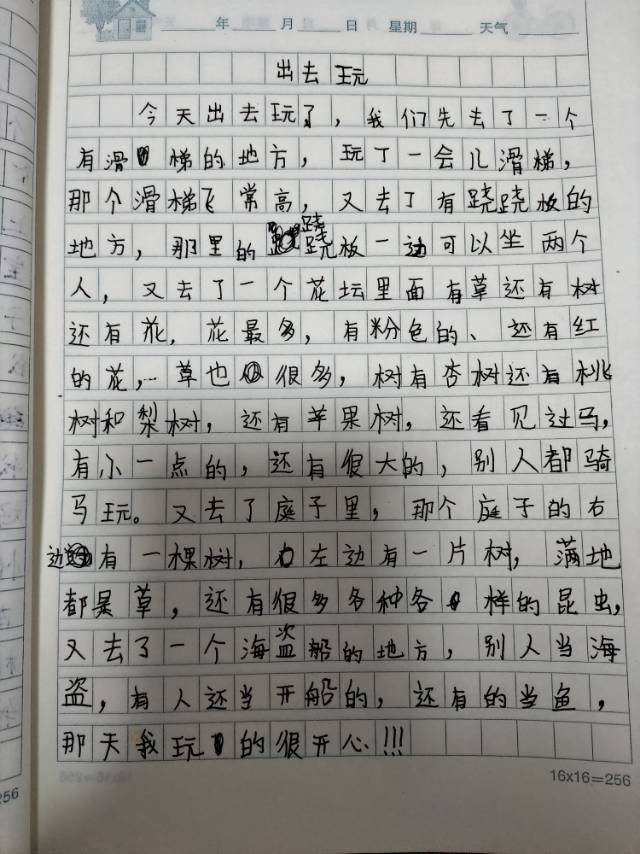 年 月 日 星期 天气
出去玩
今天出去玩了，我们先去了一个
有滑梯的地方，玩了一会儿滑梯，
那个滑梯飞常高，又去了有跷跷板的
地方，那里的跷跷板一边可以坐两个
人，又去了一个花坛里面有草还有树
还有花，花最多，有粉色的、还有红
的花，…草也很多，树有杏树还有桃
树和梨树，还有苹果树，还看见过马，
有小一点的，还有很大的，别人都骑
马玩。又去了庭子里，那个庭子的右
边有一棵树，左边有一片树，满地
都是草，还有很多各种各样的昆虫，
又去了一个海盗船的地方，别人当海
盗，有人还当开船的，还有的当鱼，
那天我玩的很开心!!!
16×16=256
256